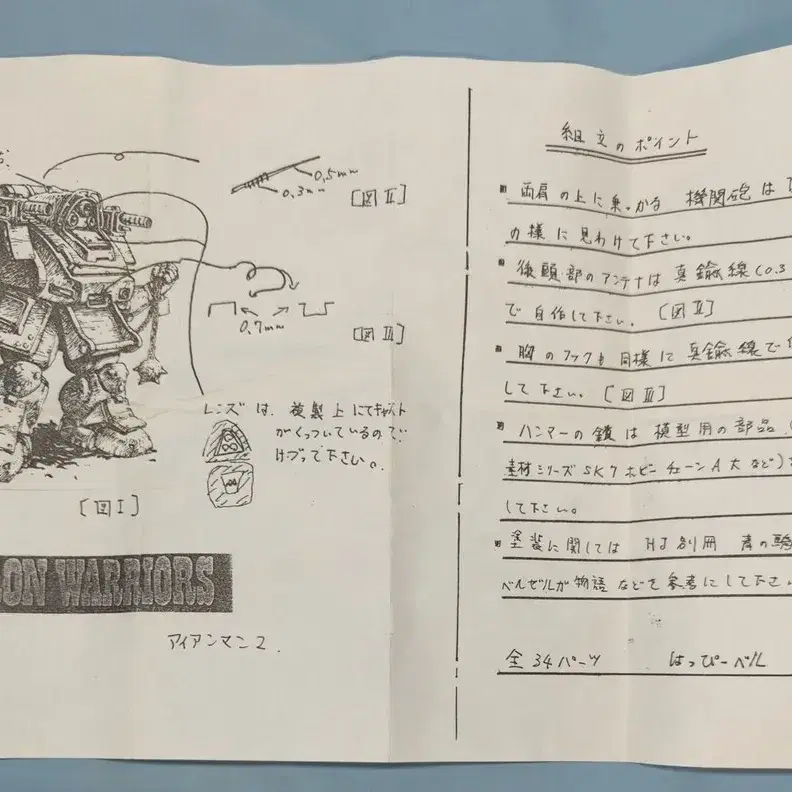 0.5mm
0.3mm
[図Ⅱ]
0.7mm
[図Ⅲ]
レンズは、複製上にてキャスト
がくっついているので、
けづって下さい。
[図Ⅰ]
ON WARRIORS
アイアンマン2.
組立のポイント
両肩の上に乗っかる 機関砲は
の様に見わけて下さい。
後頭部のアンテナは真鍮線(0.3
で自作して下さい。 [図Ⅱ]
胸のフックも同様に真鍮線で
して下さい。[図Ⅲ]
ハンマーの鎖は模型用の部品
素材シリーズSK7ホビーチェーンA大など)
して下さい。
塗装に関しては HJ別冊 青の騎
ベルゼルガ物語などを参考にして下さい
全34パーツ はっぴーベル